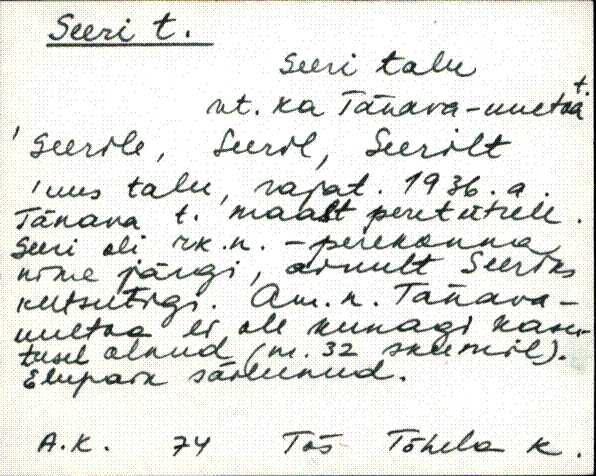 Seeri t.
Seeri talu
vt. ka Tänava-uuetoa t.
'Seerile, Seeril, Seerilt
'uus talu, rajat. 1936. a.
Tänava t. maast peretütrele.
Seeri oli rk.n. - perekonna
nime järgi, ainult Seeriks
kutsutigi. Am.n. Tänava-
uuetoa ei ole kunagi kasu-
tusel olnud (nr. 32 skeemil).
Elupaik säilinud.
A.K. 74 Tõs Tõhela k.